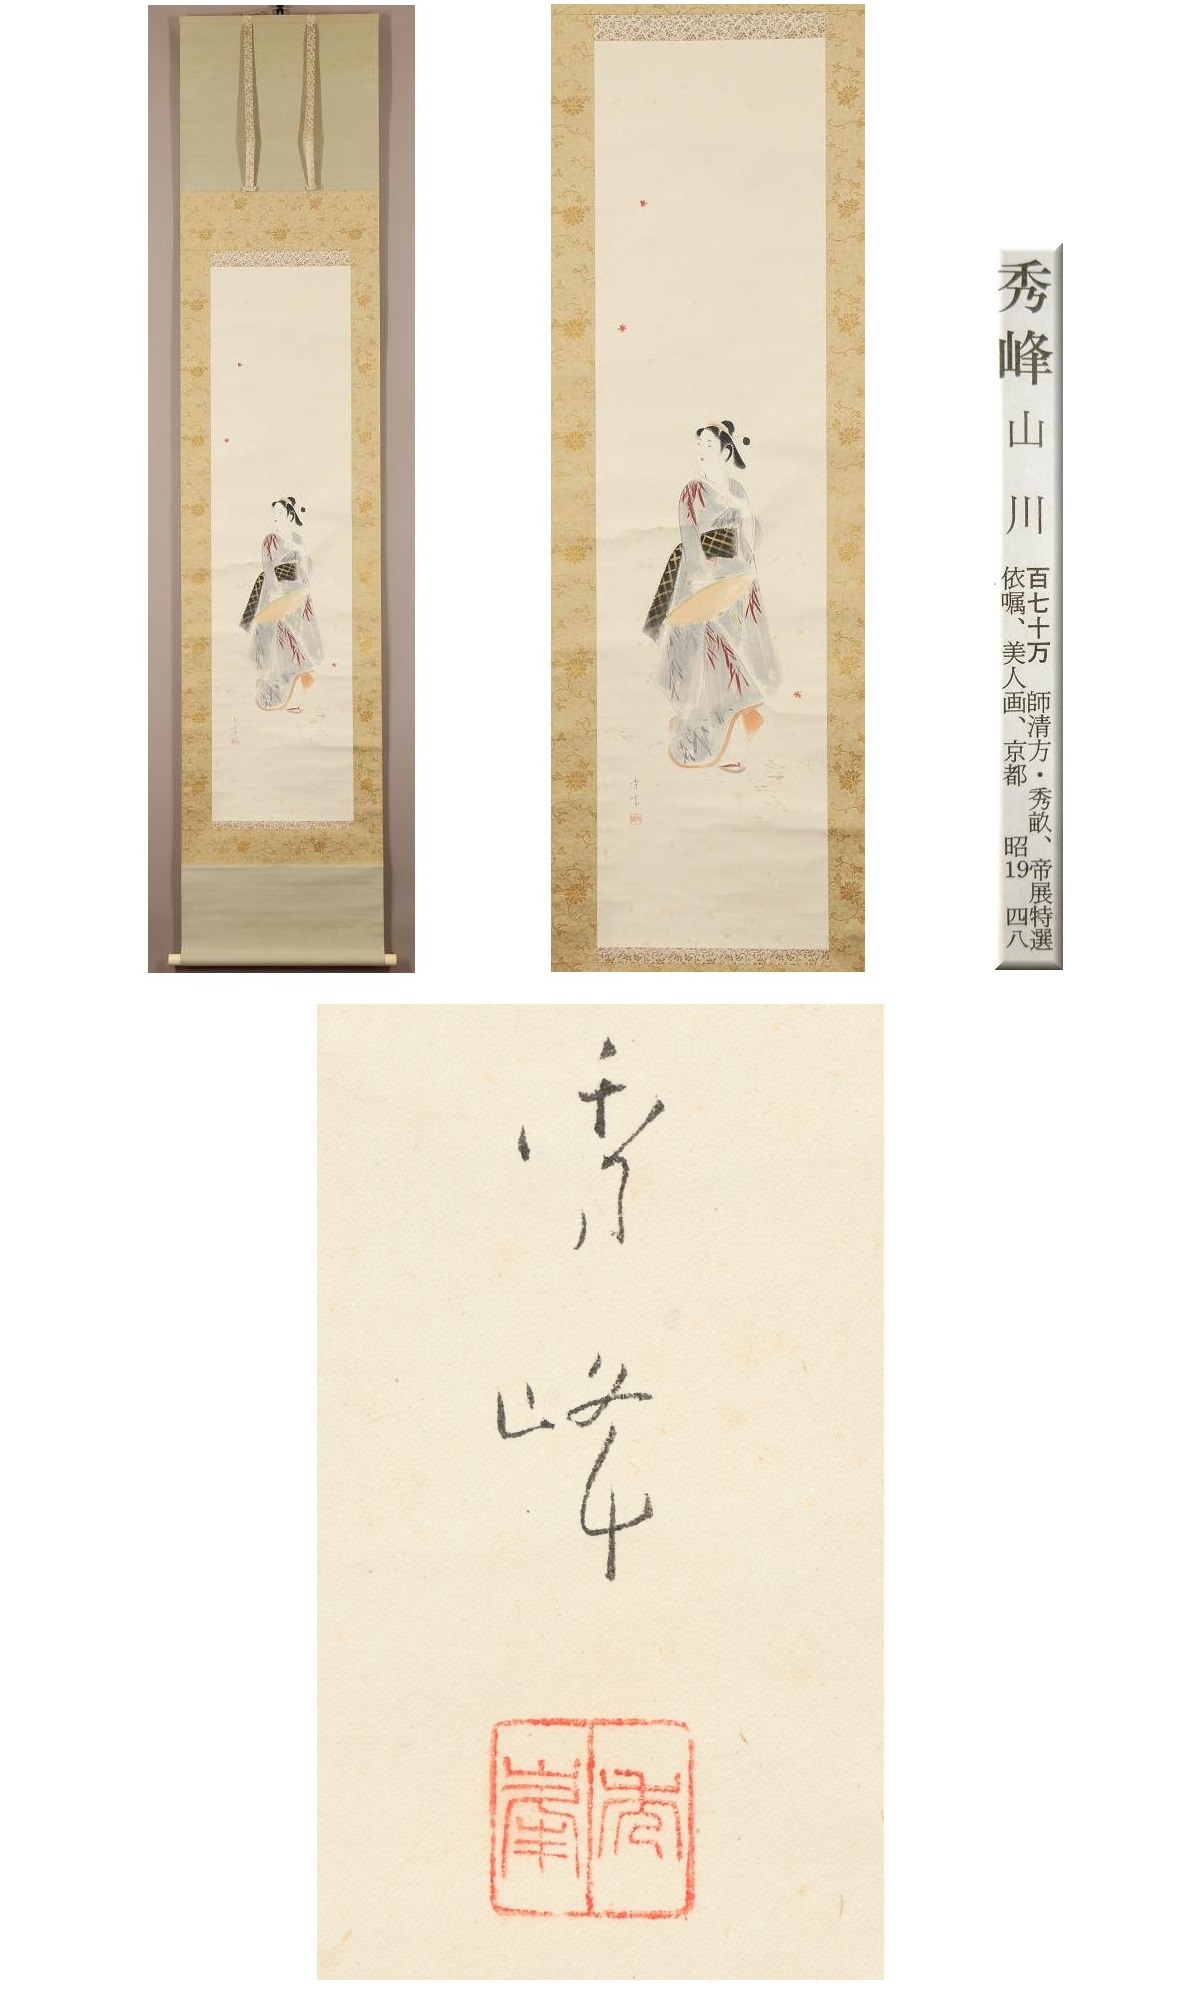 秀峰 山川
百七十万 師清方・秀畝、帝展特選
依嘱、美人画、京都 昭19 四八
秀峰
秀峰
秀峰